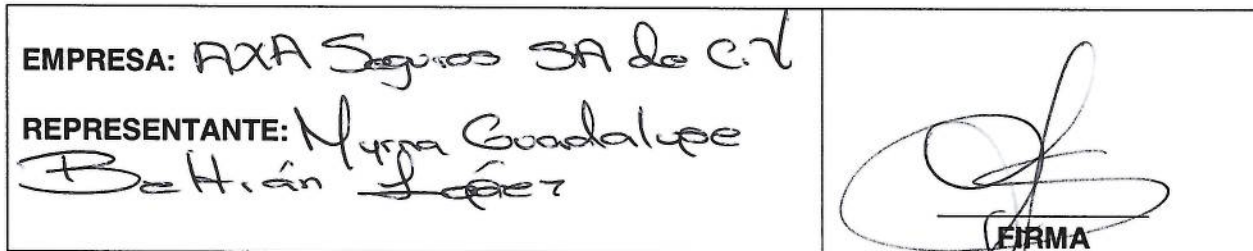 EMPRESA: AXA Seguros SA de C.V
REPRESENTANTE: Myrna Guadalupe
Beltrán López
FIRMA